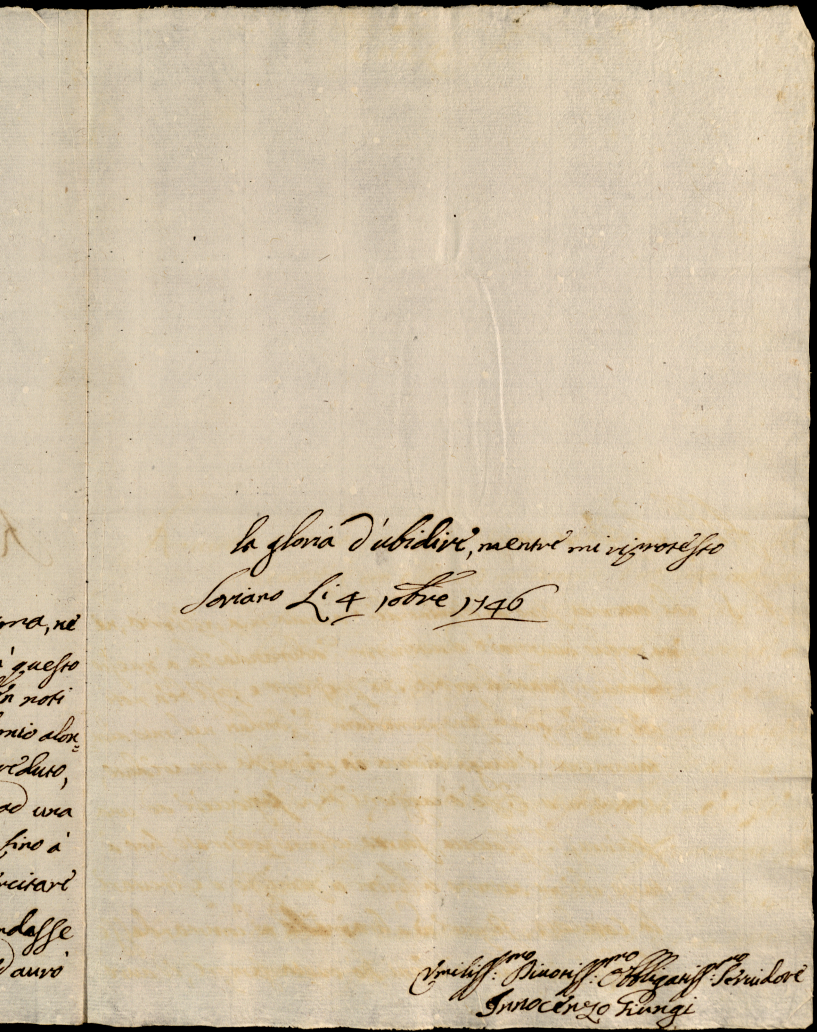 ma, nè
à questo
n noti
nio alon=
veduto,
ad una
fino à
rcitarè
ndasse
d aurò
la gloria d'ubidirè, mentrè mi riprotesto
Soriano Li 4 10bre 1746
Umiliss:mo Diuotiss:mo Obbligatiss:mo Seruidorè
Innocenzo